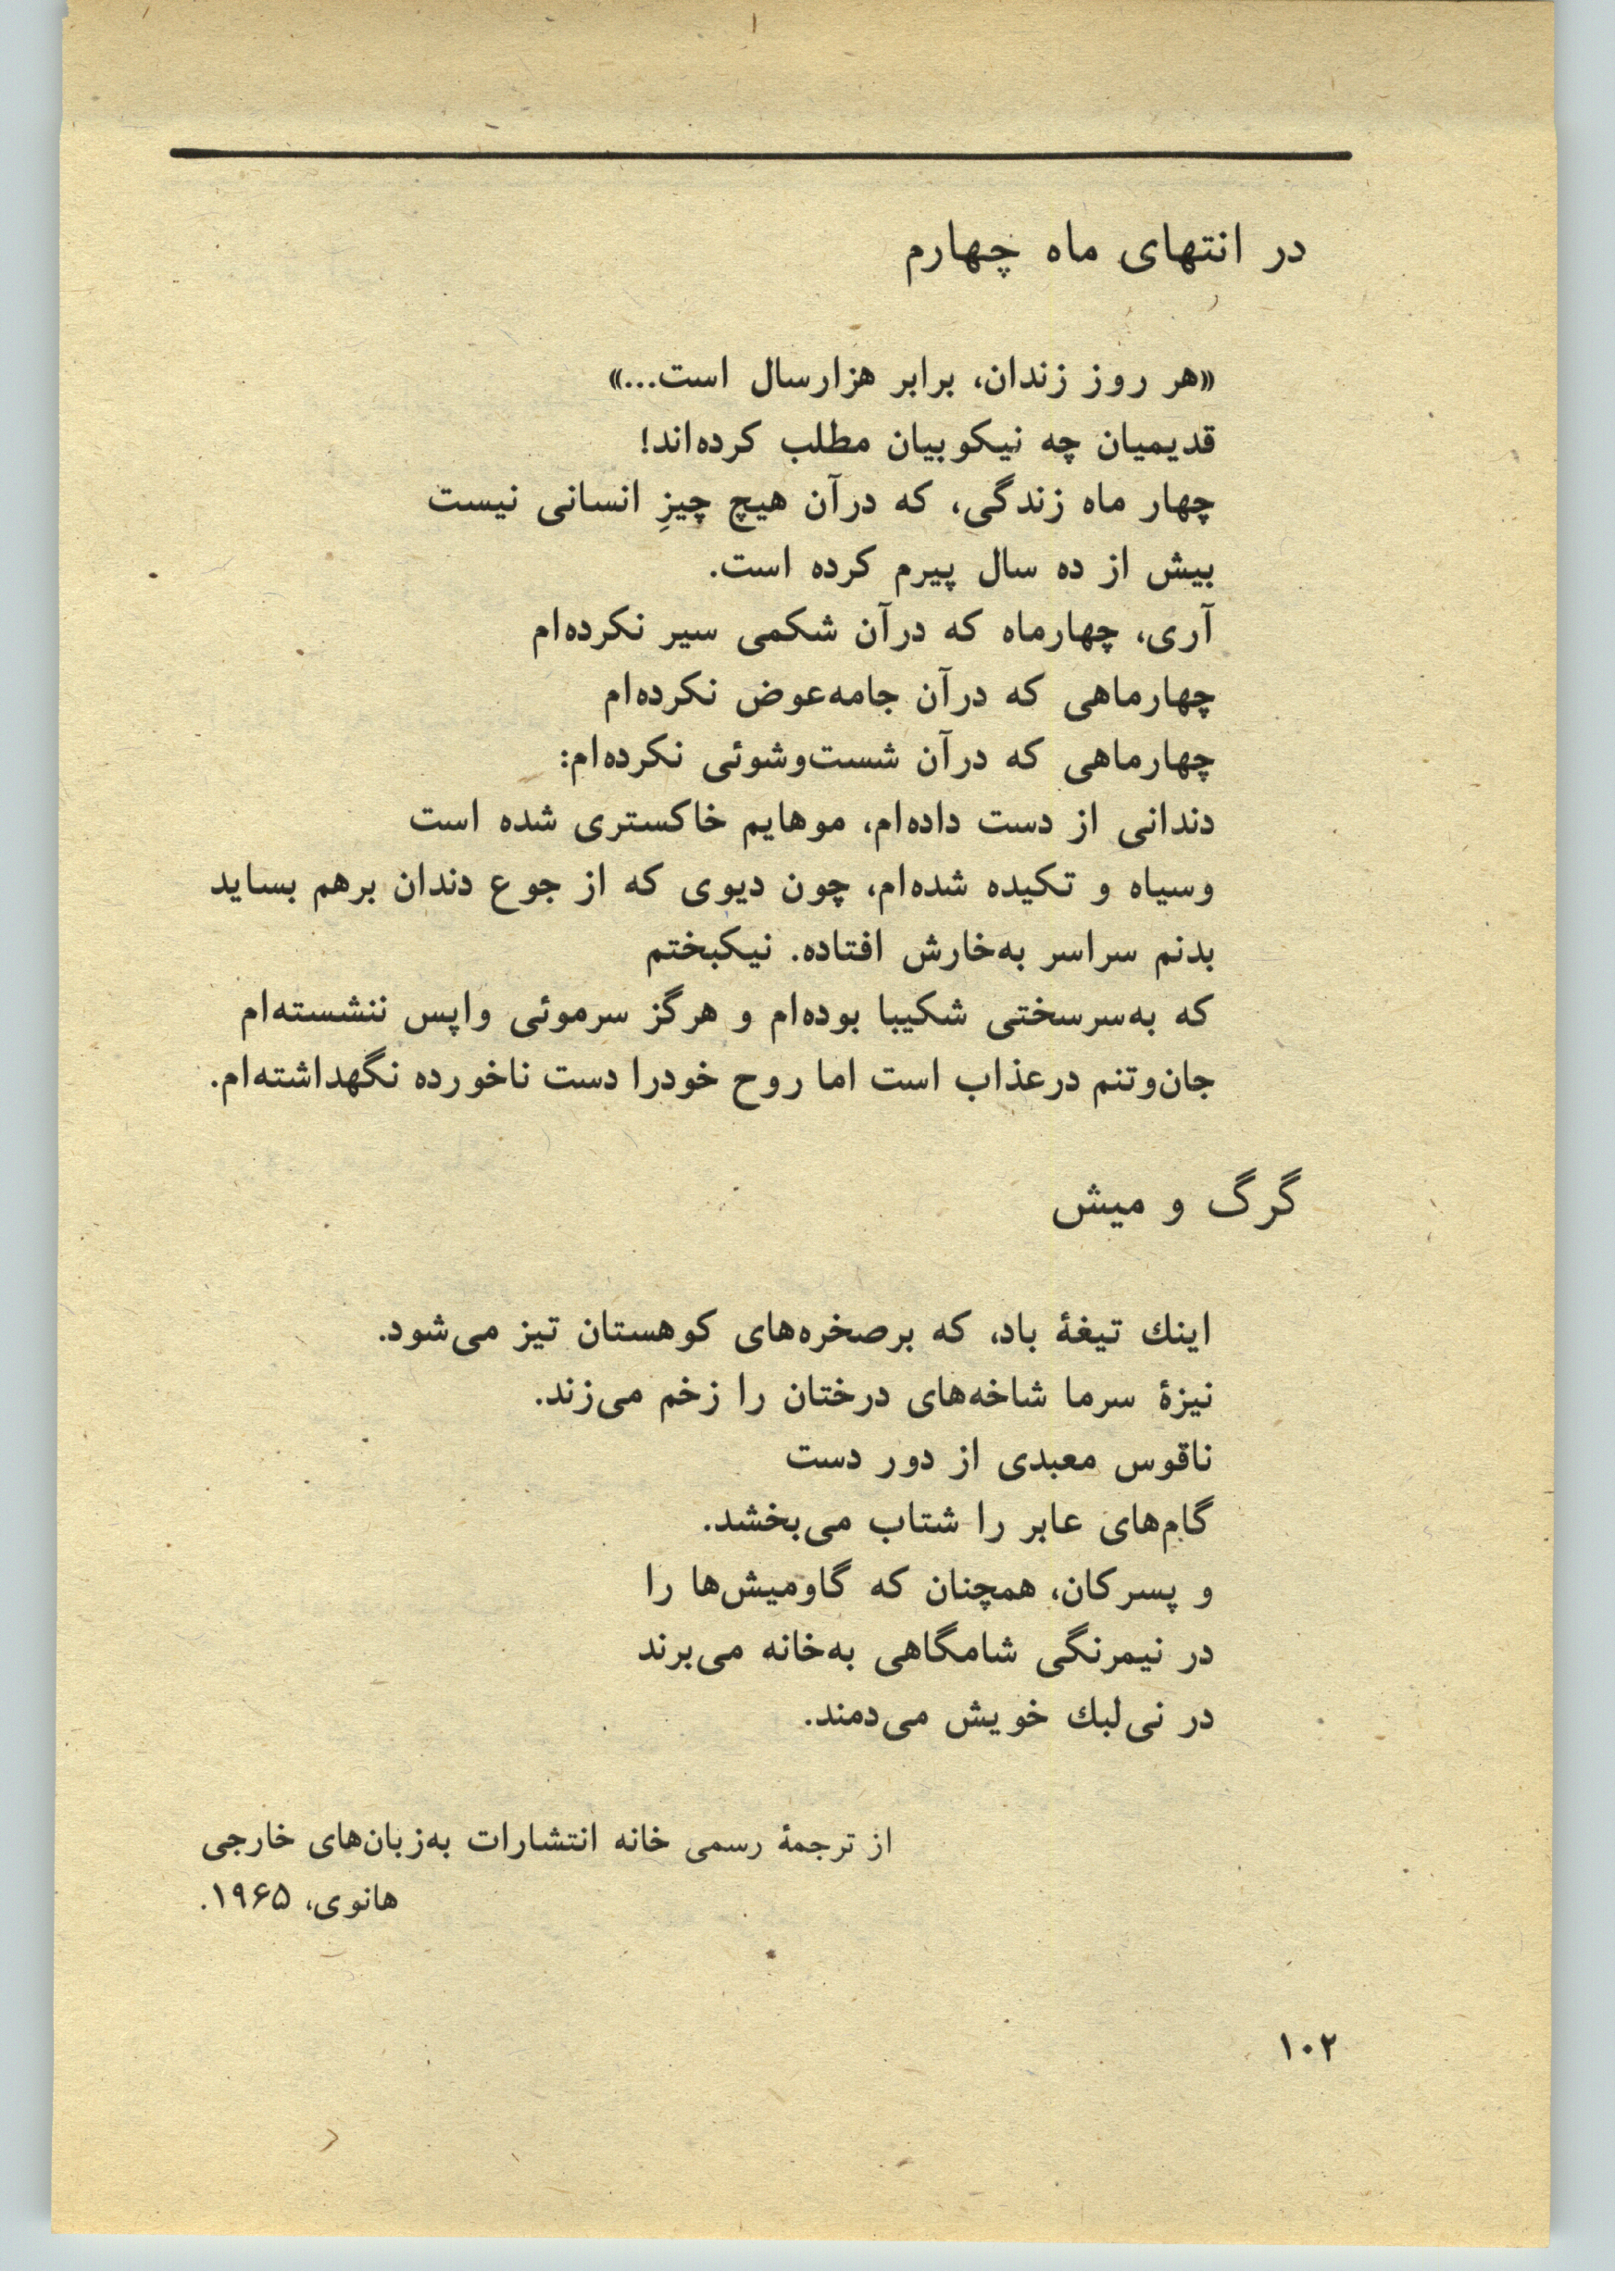 در انتهای ماه چهارم
«هر روز زندان، برابر هزارسال است...»
قدیمیان چه نیکوبیان مطلب کرده‌اند!
چهار ماه زندگی، که درآن هیچ چیزِ انسانی نیست
بیش از ده سال پیرم کرده است.
آری، چهارماه که درآن شکمی سیر نکرده‌ام
چهارماهی که درآن جامه‌عوض نکرده‌ام
چهارماهی که درآن شست‌وشوئی نکرده‌ام:
دندانی از دست داده‌ام، موهایم خاکستری شده است
وسیاه و تکیده شده‌ام، چون دیوی که از جوع دندان برهم بساید
بدنم سراسر به‌خارش افتاده. نیکبختم
که به‌سرسختی شکیبا بوده‌ام و هرگز سرموئی واپس ننشسته‌ام
جان‌وتنم درعذاب است اما روح خودرا دست ناخورده نگهداشته‌ام.
گرگ و میش
اینك تیغهٔ باد، که برصخره‌های کوهستان تیز می‌شود.
نیزهٔ سرما شاخه‌های درختان را زخم می‌زند.
ناقوس معبدی از دور دست
گام‌های عابر را شتاب می‌بخشد.
و پسرکان، همچنان که گاومیش‌ها را
در نیمرنگی شامگاهی به‌خانه می‌برند
در نی‌لبك خویش می‌دمند.
از ترجمهٔ رسمی خانه انتشارات به‌زبان‌های خارجی
هانوی، ۱۹۶۵.
۱۰۲